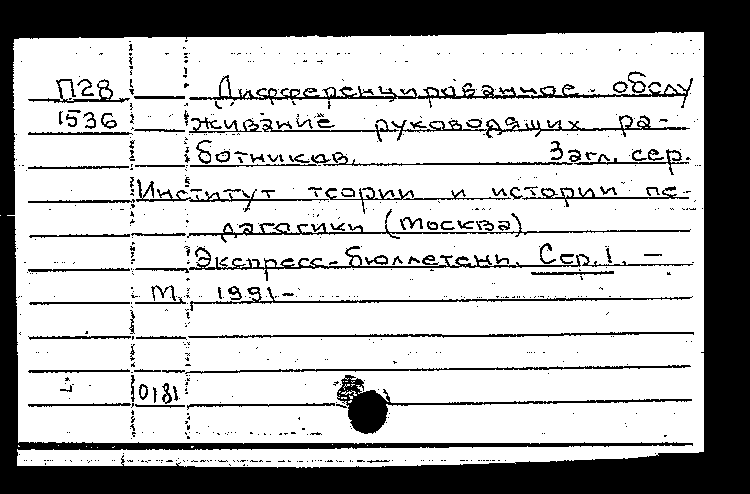 П28 Дифференцированное обслу
1536 живание руководящих ра-
ботников. Загл. сер.
Институт теории и истории пе-
дагогики (Москва)
Экспресс-бюллетень. Сер. 1. —
М., 1991-
0181